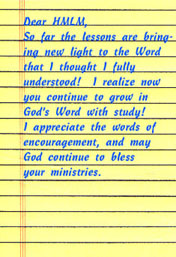 Dear HMLM,
So far the lessons are bring-
ing new light to the Word
that I thought I fully
understood! I realize now
you continue to grow in
God's Word with study!
I appreciate the words of
encouragement, and may
God continue to bless
your ministries.